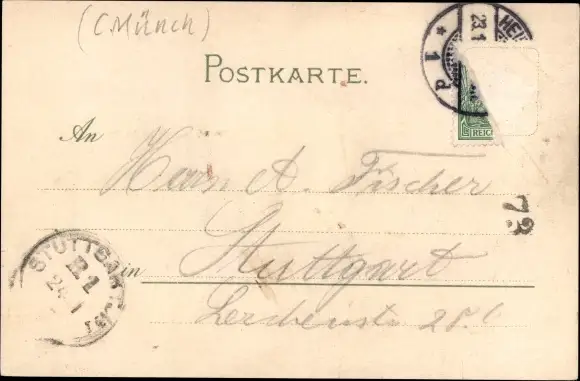 (C Münch)
POSTKARTE.
23.1
HEI
* 1 d
REIC
An
Herrn A. Fischer
73
in
Stuttgart
STUTTGART
24 1
Lerchenstr 28.